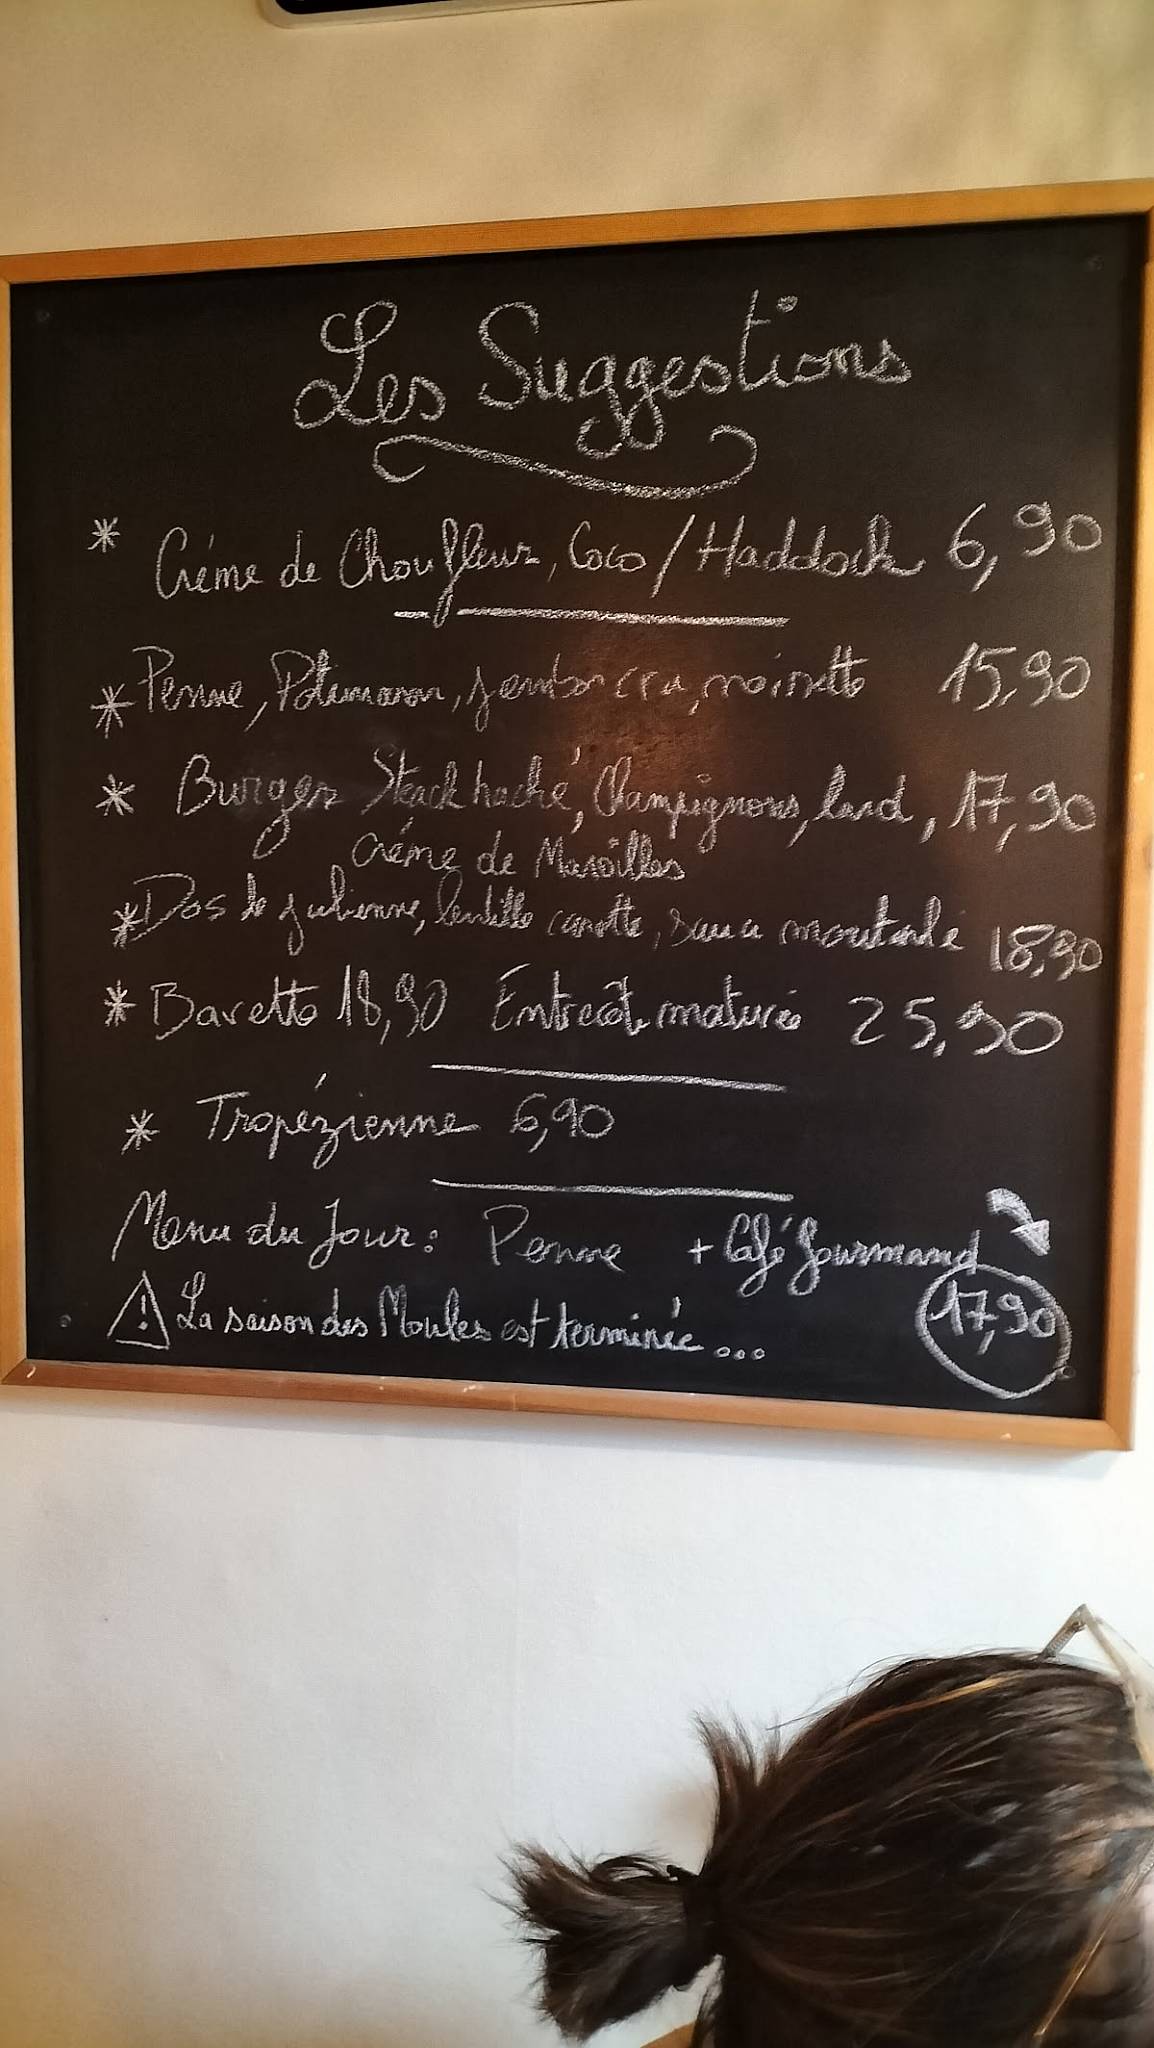 Les Suggestions
* Crème de Choufleur, Coco / Haddock 6,90
* Penne, Potimaron, jambon cru, noisette 15,90
* Burger Steack haché, Champignons, lard, 17,90
Crème de Maroilles
* Dos de julienne, lentille carotte, sauce moutarde 18,90
* Bavette 18,90 Entrecôte maturée 25,90
* Tropézienne 6,90
Menu du Jour : Penne + Café Gourmand
17,90
! La saison des Moules est terminée...